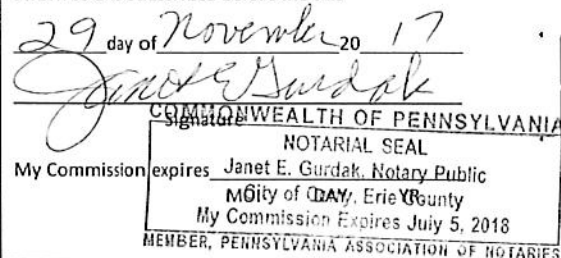 29 day of November 20 17
Janet E Gurdak
Signature
COMMONWEALTH OF PENNSYLVANIA
NOTARIAL SEAL
My Commission expires Janet E. Gurdak, Notary Public
MO. DAY YR.
City of Erie County
My Commission Expires July 5, 2018
MEMBER, PENNSYLVANIA ASSOCIATION OF NOTARIES